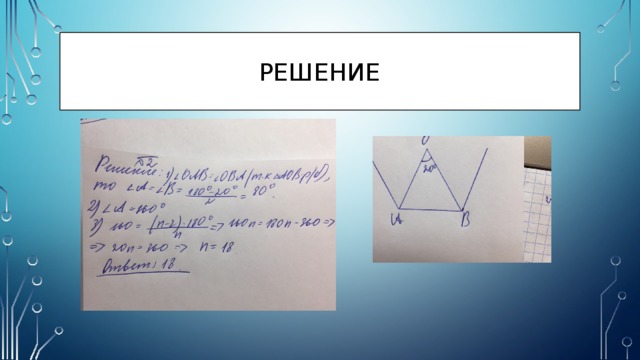 РЕШЕНИЕ
№2
Решение: 1) ∠OAB=∠OBA (т.к. △AOB р/б),
то ∠A=∠B= (180°-20°)/2 = 80°.
2) ∠A=160°
3) 160= ((n-2)·180°)/n => 160n=180n-360 =>
=> 20n=360 => n=18
Ответ: 18
O
20°
A B